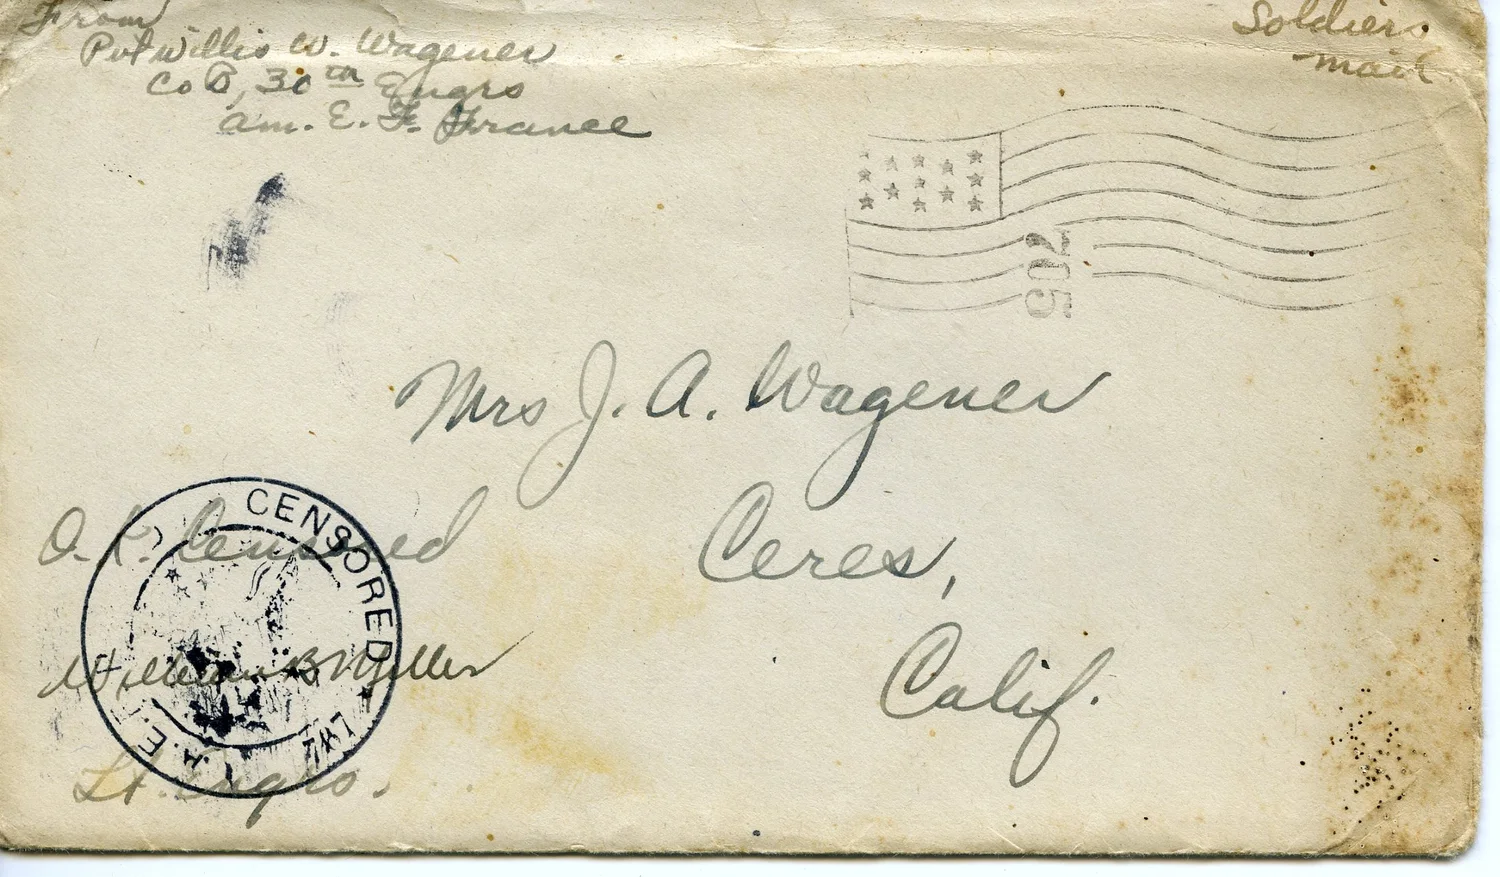 From
Pvt Willis W. Wagener
Co B, 30th Engrs
Am. E. F. France
Soldiers
mail
205
Mrs J. A. Wagener
Ceres,
Calif.
O.K. Censored
William B Miller
Lt. Engrs.
CENSORED
A.E.F.